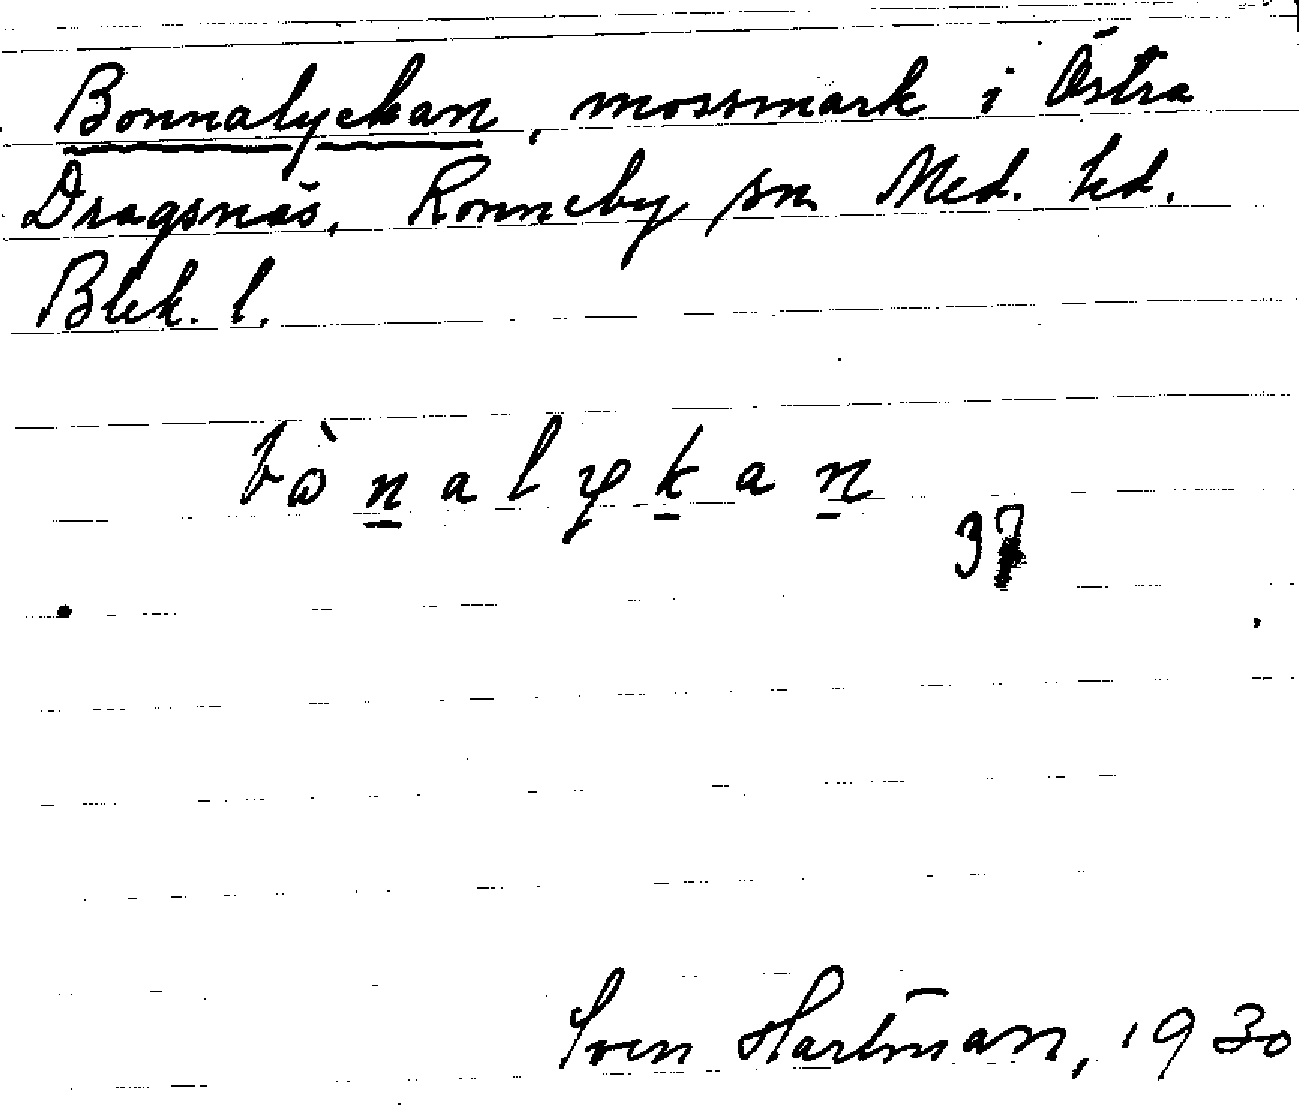 Bonnalyckan, mossmark i Östra
Dragsnäs, Ronneby sn Med. hd.
Blek. l.
37
Sven Hartman, 1930